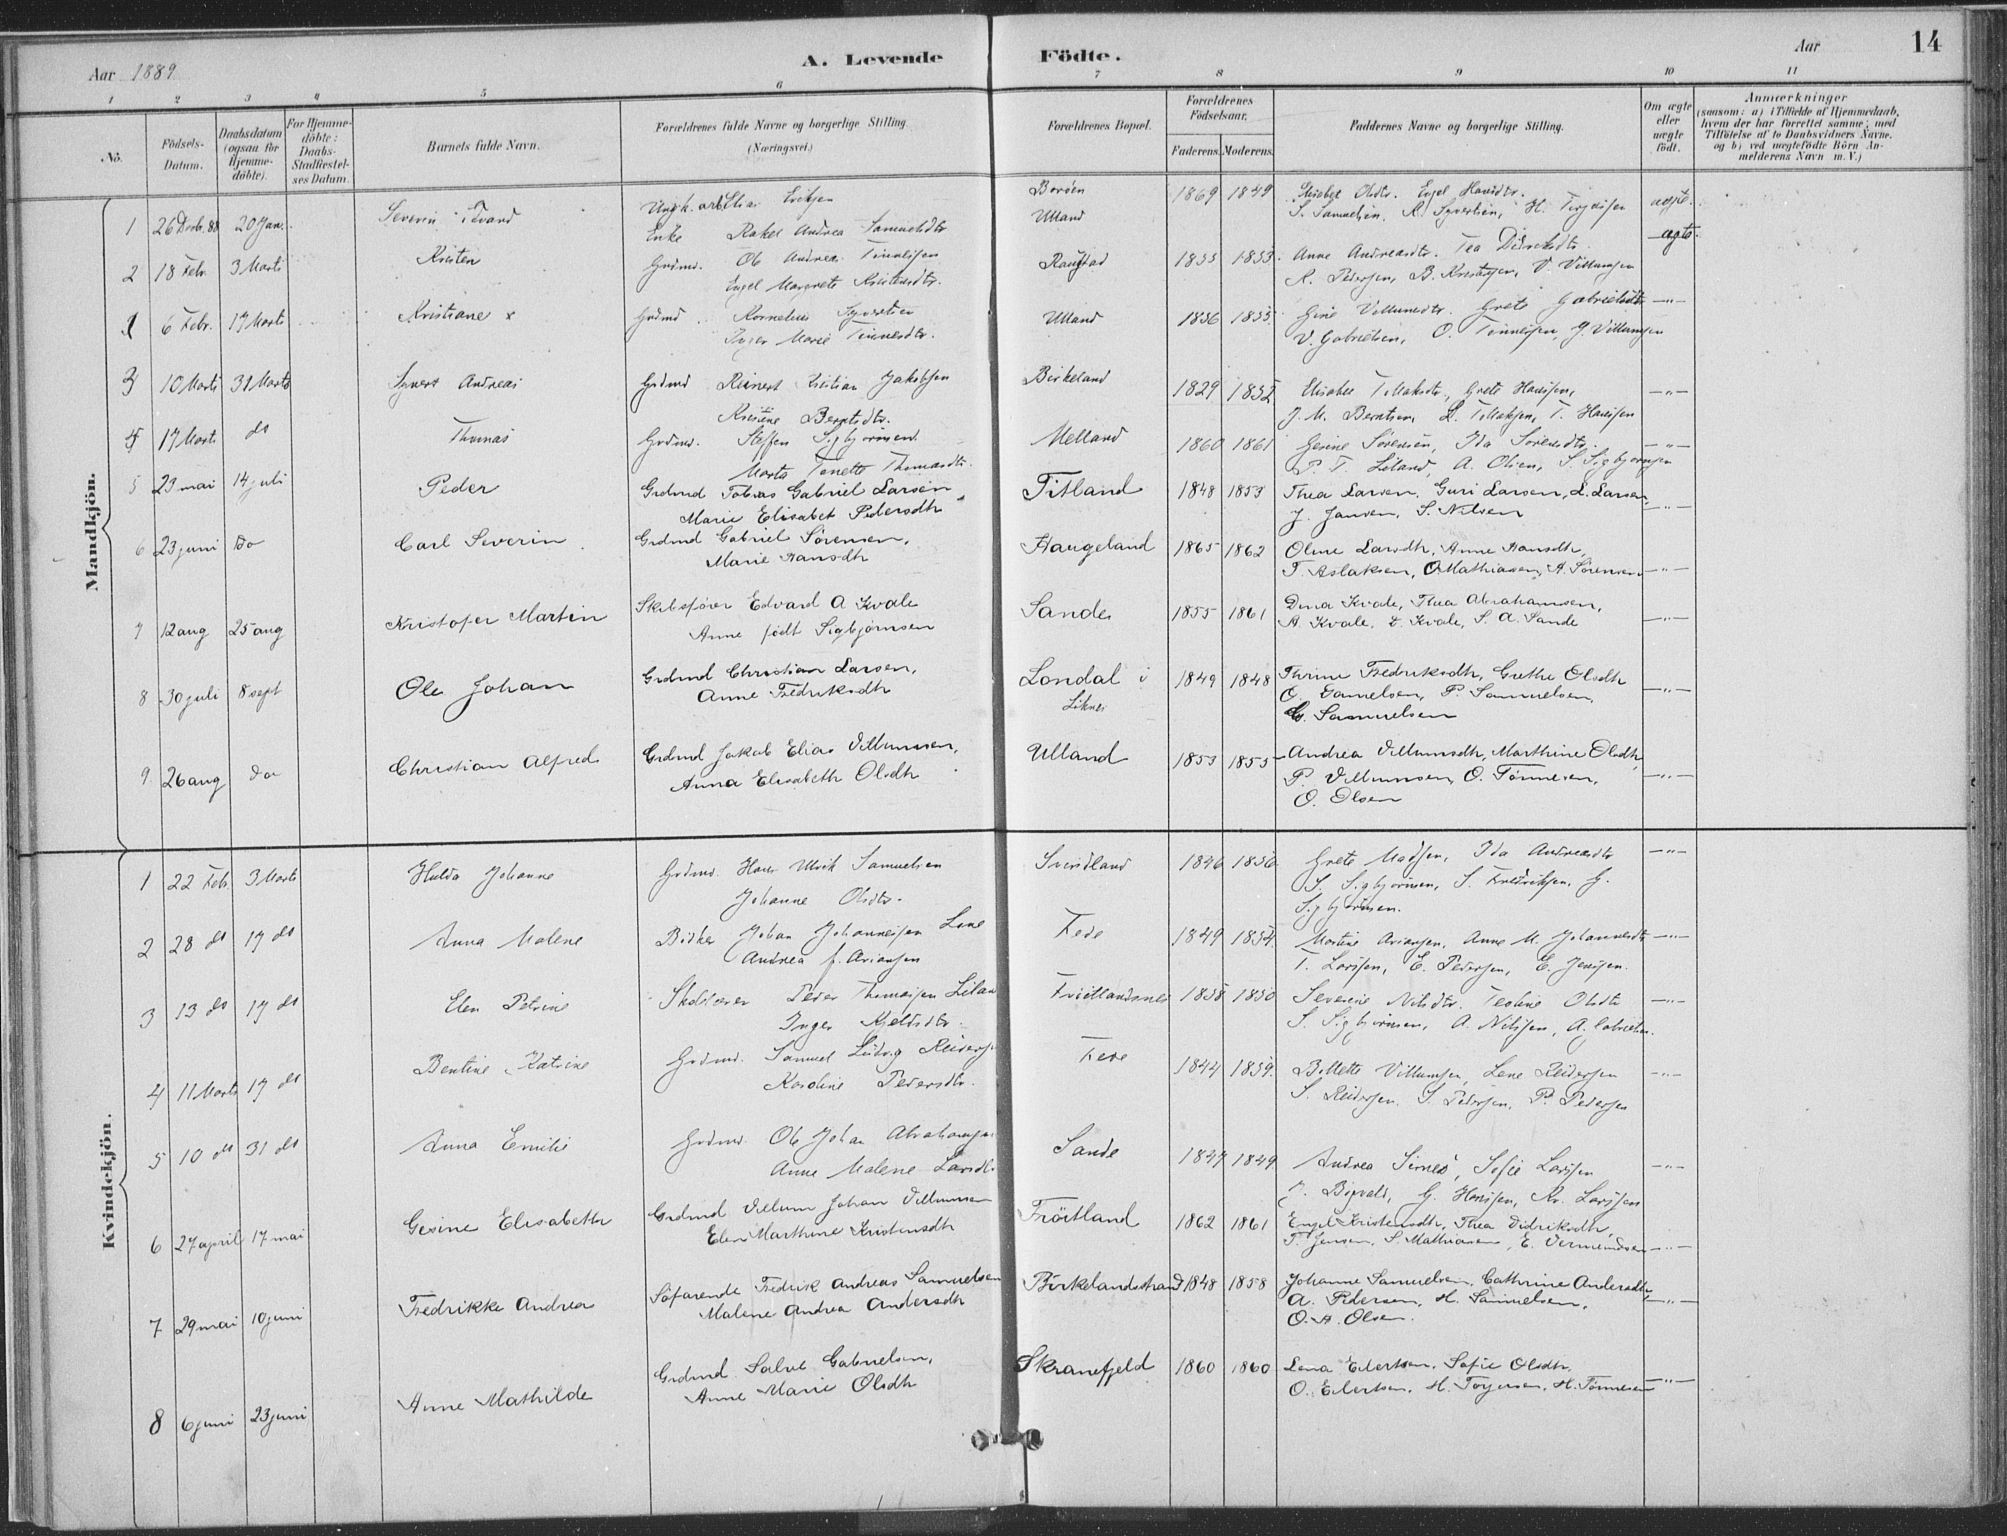 Aar 1889
A. Levende Födte.
Aar
14
1 2 3 4 5 6 7 8 9 10 11
No.
Födsels-Datum.
Daabsdatum (ogsaa for Hjemme-döbte).
For Hjemme-döbte: Daabs-Stadfæstel-ses Datum.
Barnets fulde Navn.
Forældrenes fulde Navne og borgerlige Stilling.
(Næringsvei.)
Forældrenes Bopæl.
Forældrenes Födselsaar.
Faderens. Moderens.
Faddernes Navne og borgerlige Stilling.
Om ægte eller uægte födt.
Anmærkninger
(saasom: a) i Tilfælde af Hjemmedaab, hvem der har forrettet samme, med Tilföielse af to Daabsvidners Navne, og b) ved uægtefödte Börn An-melderens Navn m. V.)
Mandkjön.
1 26 Decb. 88 20 Jan. Severin Edvard Ungk. arb. Elias Eriksen Borøen 1869 1849 Elisabet Olsdtr. Engel Hansdtr. ægte.
Enke Rakel Andrea Samuelsdtr Ulland S. Samuelsen, R. Syvertsen, H. Terjesen
2 18 Febr. 3 Marts Kristen Grdmd. Ole Andreas Tønnesen 1855 1853 Anne Andreasdtr. Tea Didriksdtr. ægte.
Engel Margrete Kristensdtr. R. Pedersen, B. Kristensen, V. Villumsen
6 Febr. 17 Marts Kristiane x Grdmd. Kornelius Syvertsen Ulland 1856 1855 Villumsdtr. Grete Gabrielsdtr —„—
Inger Marie Tønnesdtr. V. Gabrielsen, O. Tønnesen, G. Villumsen
3 10 Marts 31 Marts Syvert Andreas Grdmd Reinert Kristian Jakobsen Birkeland 1829 1852 Elisabet Grete Hansen, —„—
Kristine Berntsdtr. J. M. Berntsen, T. Hansen
4 17 Marts do Thomas Grdmd. Steffen Sigbjørnsen Melland 1860 1861 Gesine Sørensen, Ida Sørensdtr. —„—
Marta Tonette Thomasdtr. P. T. Liland, A. Olsen, S. Sigbjørnsen
5 23 mai 14 juli Peder Grdmd Tobias Gabriel Larsen Fitland 1848 1853 Thea Larsen, Guri Larsen, L. Larsen,
Marie Elisabet Pedersdtr J. Jansen, S. Nilsen —„—
6 23 juni Do Carl Severin Grdmd Gabriel Sørensen, Haugeland 1865 1862 Oline Larsdtr, Anne Hansdtr,
Marie Hansdtr T. Aslaksen, O Mathiasen, A. Sørensen —„—
7 12 aug 25 aug Kristofer Martin Skibsfører Edvard A Kvale Sande 1855 1861 Dina Kvale, Thea Abrahamsen,
Anne født Sigbjørnsen A. Kvale, E. Kvale, S. A. Sande —„—
8 30 juli 8 sept Ole Johan Grdmd Christian Larsen, Londal i 1849 1848 Thrine Fredriksdtr, Grethe Olsdtr
Anne Fredriksdtr Liknes O. Danielsen, P. Samuelsen, —„—
G. Samuelsen
9 26 aug Do Christian Alfred Grdmd Jakob Elias Villumsen, Ulland 1853 1855 Andrea Villumsdtr, Marthine Olsdtr,
Anna Elisabeth Olsdtr P. Villumsen, O. Tønnesen, —„—
O. Olsen
Kvindekjön.
1 22 Feb. 3 Marts Hulda Johanne Grdmd. Hans Ulrik Samuelsen Svindland 1846 1856 Grete Madsen, Ida Andreasdtr —„—
Johanne Olsdtr. S. Sigbjørnsen, S. Fredriksen, G.
Sigbjørnsen.
2 28 do 17 do Anna Malene Bødker Johan Johannesen Lene Fede 1849 1854 Martine Ariansen, Anne M. Johannesdtr —„—
Andrea f. Ariansen T. Larsen, E. Pedersen, E. Jensen.
3 13 do 17 do Elen Petrine Skolelærer Peder Thomasen Liland Frøitlandsnes 1858 1850 Severine Nilsdtr. Teoline Olsdtr —„—
Inger S. Sigbjørnsen, A. Nilsen, A. Gabrielsen.
4 11 Marts 17 do Bentine Katrine Grdmd. Samuel Ludvig Reiersen Fede 1844 1859. Villumsen, Lene Reiersen —„—
Karoline Pedersdtr. S. Reiersen, S. Pedersen, P. Pedersen
5 10 do 31 do Anna Emilie Grdmd. Ole Johan Abrahamsen Sande 1847 1849 Andrea Sirnes, Sofie Larsen —„—
Anne Malene Larsdtr G. Hansen, Kr. Larsen
6 27 april 17 mai Gesine Elisabeth Grdmd Villum Johan Villumsen Frøitland 1862 1861 Engel Kristensdtr, Thea Didriksdtr,
Elen Marthine Kristensdtr T. Jensen, S. Mathiasen, E. Vermundsen —„—
7 29 mai 10 juni Fredrikke Andrea Søfarende Fredrik Andreas Samuelsen Birkelandsstrand 1848 1858 Johanne Samuelsen, Cathrine Andersdtr,
Malene Andrea Andersdtr A. Pedersen, H. Samuelsen, —„—
O. A. Olsen.
8 6 juni 23 juni Anne Mathilde Grdmd Salve Gabrielsen, Skranefjeld 1860 1860 Lena Eilertsen, Sofie Olsdtr,
Anne Marie Olsdtr O. Eilertsen, H. Torjersen, H. Tønnesen —„—